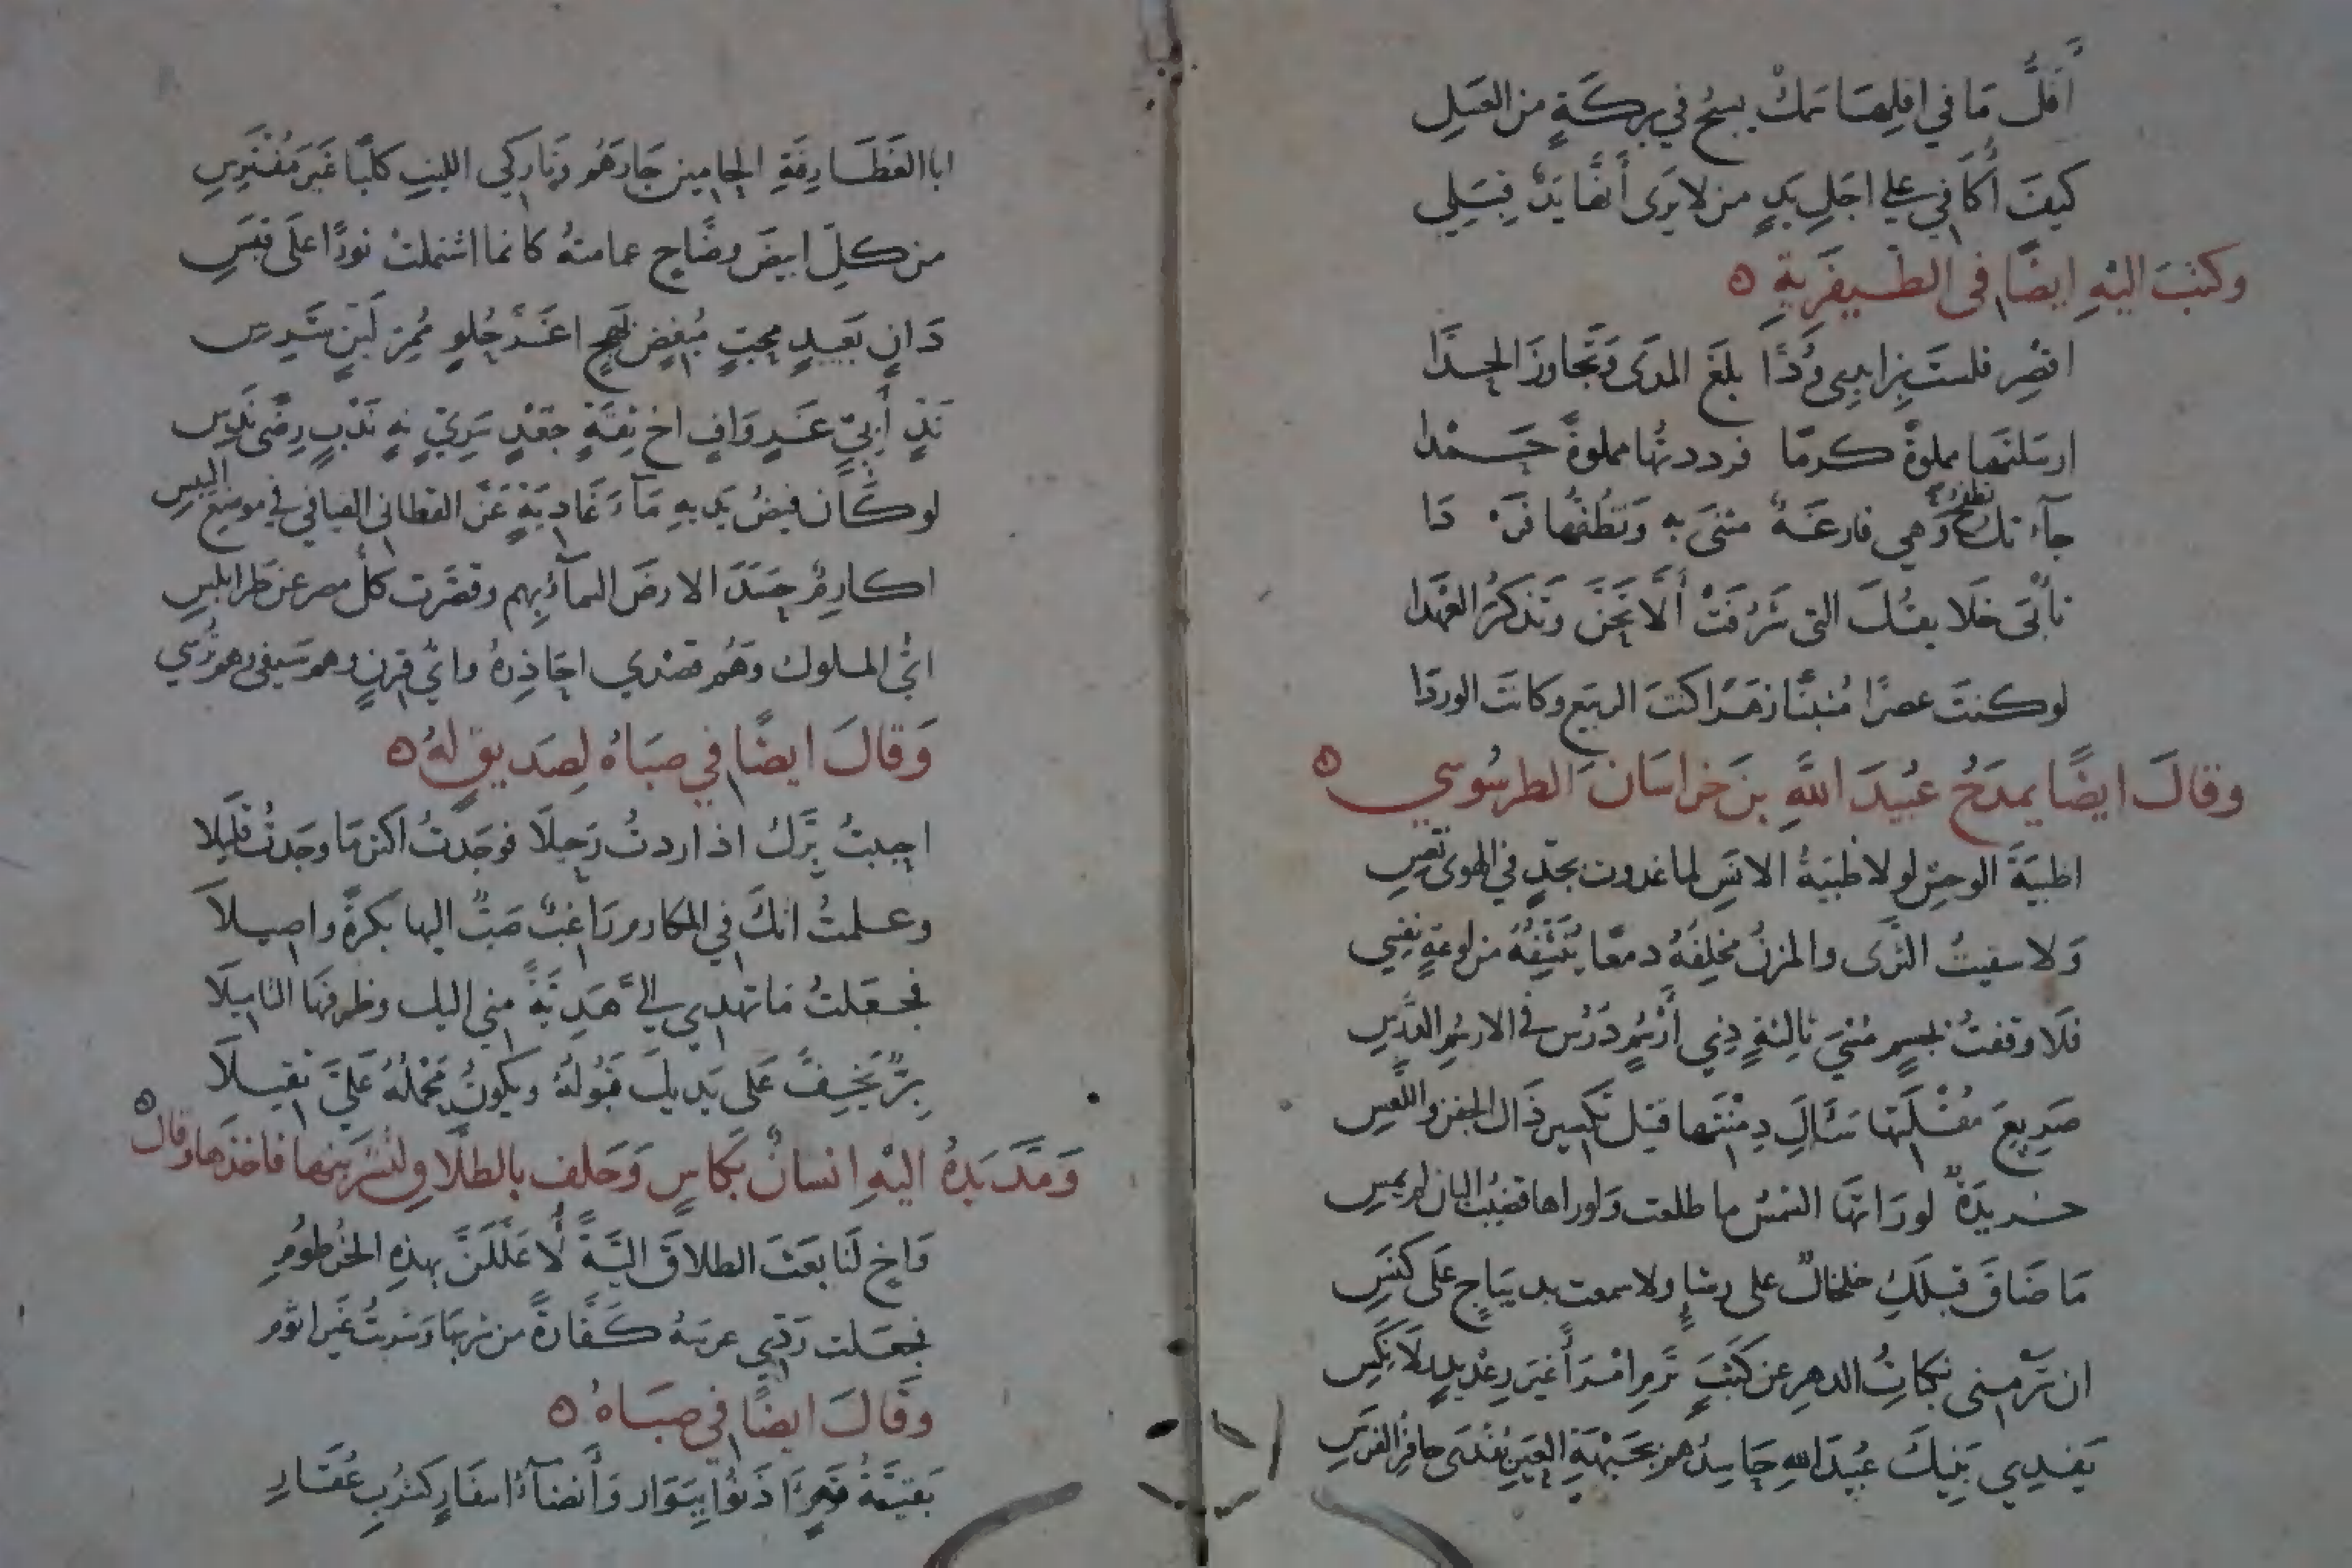 أقلُّ مَا في اقلِهَا سَمكٌ يسبحُ في بركَةٍ من العسَلِ
كيفَ أُكافي على اجلِ يَدٍ من لا يَرى أنَّها يَدٌ قِبَلِي
وكتبَ اليْهِ ايضًا فى الطَيفَرِيةِ ٥
اقصِر فلستَ بزايدِى وُدًّا بلغَ المدَى وَتَجاوزَ الحدَّا
ارسَلتَها مملوةً كرمًا فرددتُها مملوةً حَمْدا
جآءتك تطفحُ وَهي فارغَةٌ مثنَى به وَتظُنُّها فرْدَا
تأْبَى خلَايقُكَ التى شَرُفَتْ أَلَّا تَحِنَّ وَتذكرُ العَهْدا
لو كنتَ عصرًا مُنبتًا زهَرًا كنتَ الربيعَ وكانتَ الوردَا
وقالَ ايضًا يمدَحُ عبُيدَ اللَّهِ بنَ خراسَانَ الطرسُوسي ٥
اظبيَةَ الوحشِ لولا ظبيَةُ الانَسِ لما غدوت بجدٍّ في الهوى تعِسِ
وَلا سقيتُ الثَّرَى والمزنُ مخلِفَهُ دمعًا يُنَشِّفُهُ من لوعَةٍ نفَسِي
فلَا وقفتُ بجسمٍ مُسْيَ ثالِثةٍ ذِي أرْسُمٍ دُرُسٍ في الارسُمِ الدُّرُسِ
صَريعَ مُقْلَتِها سَأَّالَ دِمْنَتِها قتيلَ تكسيرِ ذَاك الجفنِ واللَّعَسِ
خَريدَةٌ لو رَاتهَا الشمْسُ ما طلعت وَلو راها قضيبُ البان لم يمِسِ
مَا ضَاقَ قبلَكِ خلخالٌ على رشاءٍ ولا سمعت بديبَاجٍ عَلَى كنَسِ
ان تَرْمِنى نكبَاتُ الدهرِ عن كَثَبٍ تَرمِ امْرَأً غيرَ رِعْديدٍ لَا نَكِسِ
يَفدِي بَنِيكَ عبُيدَ اللهِ حَاسِدُهم بجَبْهَةِ العَيرِ يُفْدَى حافِرُ الفرَسِ
ابا الغَطَارِفَةِ الحامين جَارَهُم وَتَارِكِي الليثِ كلبًا غيرَ مُفْترِسِ
من كلِ ابيضَ وضَّاحٍ عمامتهُ كانما اشتملتْ نورًا علَى قبَسِ
دَانٍ بعَيدٍ محِبٍّ مُبْغِضٍ بَهِجٍ اغَرَّ حُلوٍ مُمِرٍّ لَيّنٍ شَرِسِ
نَدٍ أَبِيٍّ غَرٍ وَافٍ اخِ ثِقَةٍ جَعْدٍ سَرِيٍّ نهٍ نَدْبٍ رِضًى نَدُسِ
لو كَان فيضُ يديهِ مَآءَ غَاديَةٍ عَزَّ القطا في الفيافي موضِعُ اليبسِ
اكارِمٌ حسَدَ الارضَ السمآءُ بِهِم وقصَّرت كلُ مصرٍ عن طرابلُسِ
ايُّ الملوك وَهُم قصْدي احَاذِرهُ وايُّ قِرنٍ وهم سَيفى وهم تُرُسي
وَقالَ ايضًا في صبَاهُ لِصَديقٍ لهُ ٥
احببتُ بِرَّكَ اذ اردتُ رَحيلَا فوجَدتُ اكثرَ مَا وجَدتُ قليلا
وعلمتُ انكَ في المكارمِ رَاغبٌ صَبٌّ اليها بكرةً واصيلاَ
فجعَلتُ مَا تهدِي الىَّ هَدِيَّةً مِني اليك وظرفَهَا التاميلَا
بِرٌّ يَخِفُّ عَلى يَديكَ قبُولهُ ويكونُ مَحْمَلُهُ علَىَّ ثقيلَا
وَمَدَّ يَدَهُ اليْهِ انسانٌ بكاسٍ وَحَلف بالطلَاقِ لتشرَبنها فاخذَها وقال ٥
وَاخٍ لَنا بَعَثَ الطلاقَ اليَّةً لَأُعَلَّلَنَّ بهذِهِ الخرُطومِ
فجعَلت رَدِّي عرسَهُ كَفَّارةً من شربهَا وَشربتُ غَيرَ اثومِ
وَقَالَ ايضًا في صبَاهُ ٥
بَقيَّةُ قومٍ آذَنُوا ببَوَار وَأَنضآءُ اسفَارٍ كشَرْبِ عُقَارِ